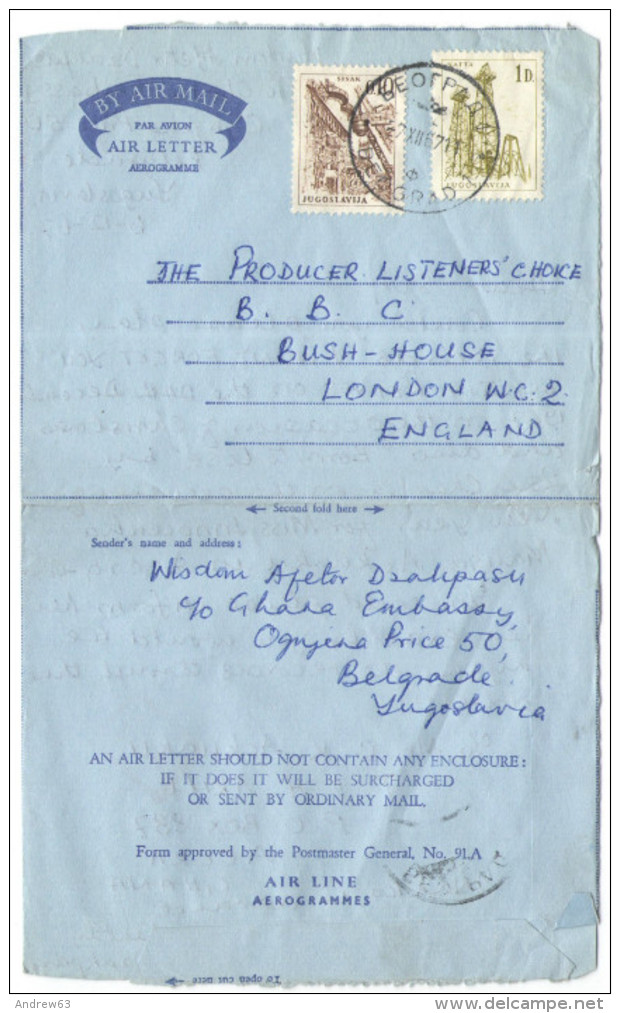 BY AIR MAIL
PAR AVION
AIR LETTER
AEROGRAMME
SISAK
JUGOSLAVIJA
NAFTA
1 D.
JUGOSLAVIJA
БЕОГРАД
BEOGRAD
THE PRODUCER LISTENERS' CHOICE
B. B. C
BUSH-HOUSE
LONDON W.C.2.
ENGLAND
← Second fold here →
Sender's name and address:
Wisdom Afetor Dzakpasu
c/o Ghana Embassy,
Ognjena Price 50,
Belgrade.
Yugoslavia
AN AIR LETTER SHOULD NOT CONTAIN ANY ENCLOSURE:
IF IT DOES IT WILL BE SURCHARGED
OR SENT BY ORDINARY MAIL.
Form approved by the Postmaster General, No. 91.A
AIR LINE
AEROGRAMMES
To open cut here
Andrew63
delcampe.net